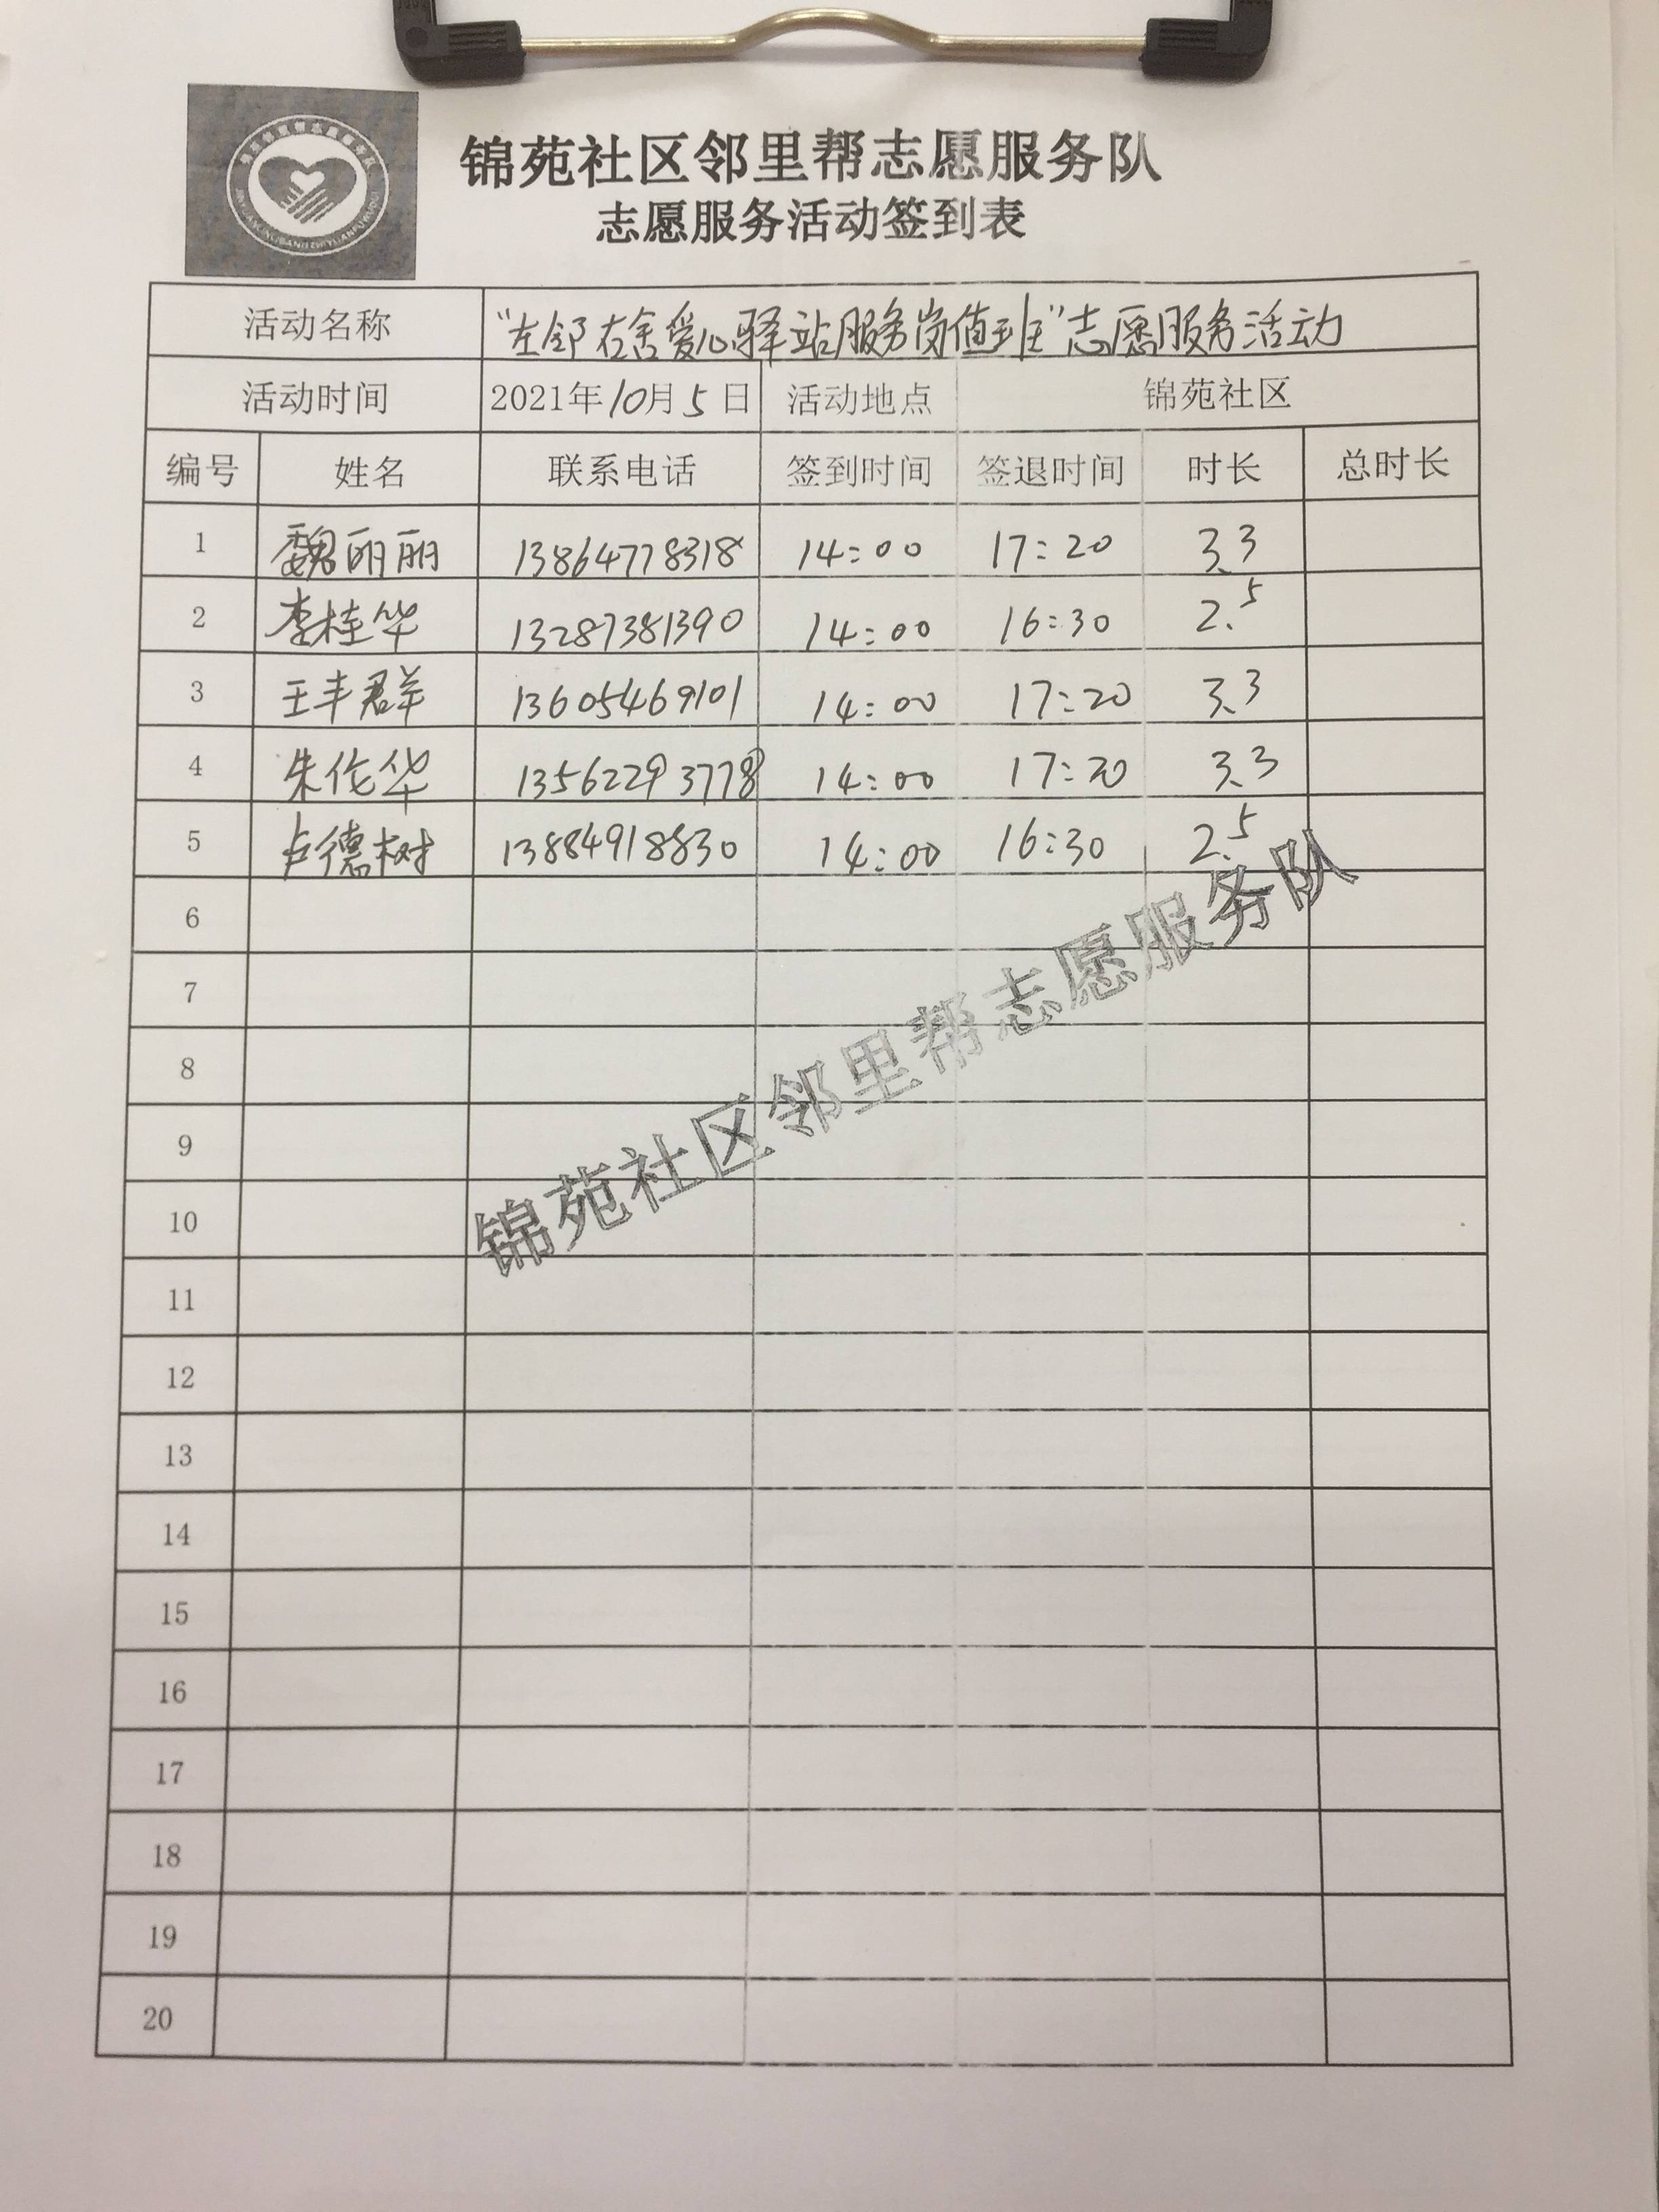 锦苑社区邻里帮志愿服务队
志愿服务活动签到表
活动名称 "左邻右舍爱心驿站服务岗值班"志愿服务活动
活动时间 2021年10月5日 活动地点 锦苑社区
编号 姓名 联系电话 签到时间 签退时间 时长 总时长
1 魏丽丽 13864778318 14:00 17:20 3.3
2 李桂华 13287381390 14:00 16:30 2.5
3 王丰君羊 13605469101 14:00 17:20 3.3
4 朱伦华 13562293778 14:00 17:20 3.3
5 卢德树 13884918830 14:00 16:30 2.5
6
7
8
9
10
11
12
13
14
15
16
17
18
19
20
锦苑社区邻里帮志愿服务队